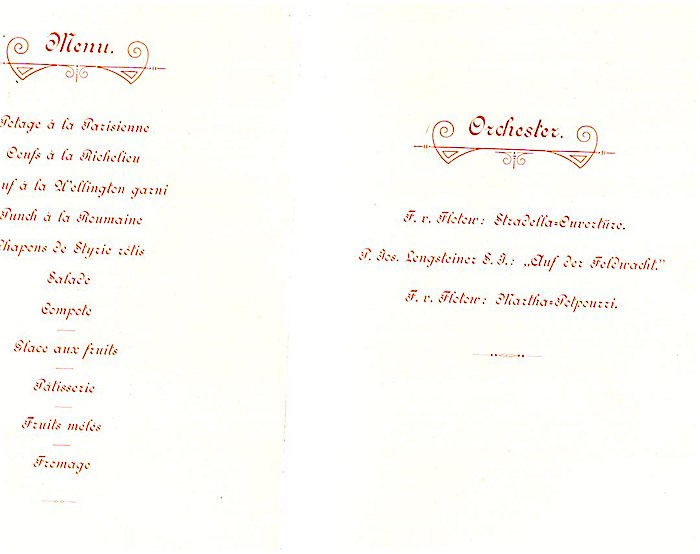 Menu.
Potage à la Parisienne
Oeufs à la Richelieu
uf à la Wellington garni
Punch à la Roumaine
Chapons de Styrie rôtis
Salade
Compote
Glace aux fruits
Pâtisserie
Fruits mêlés
Fromage
Orchester.
F. v. Flotow: Stradella=Ouvertüre.
P. Jos. Lengsteiner S. J.: „Auf der Feldwacht.”
F. v. Flotow: Martha=Potpourri.